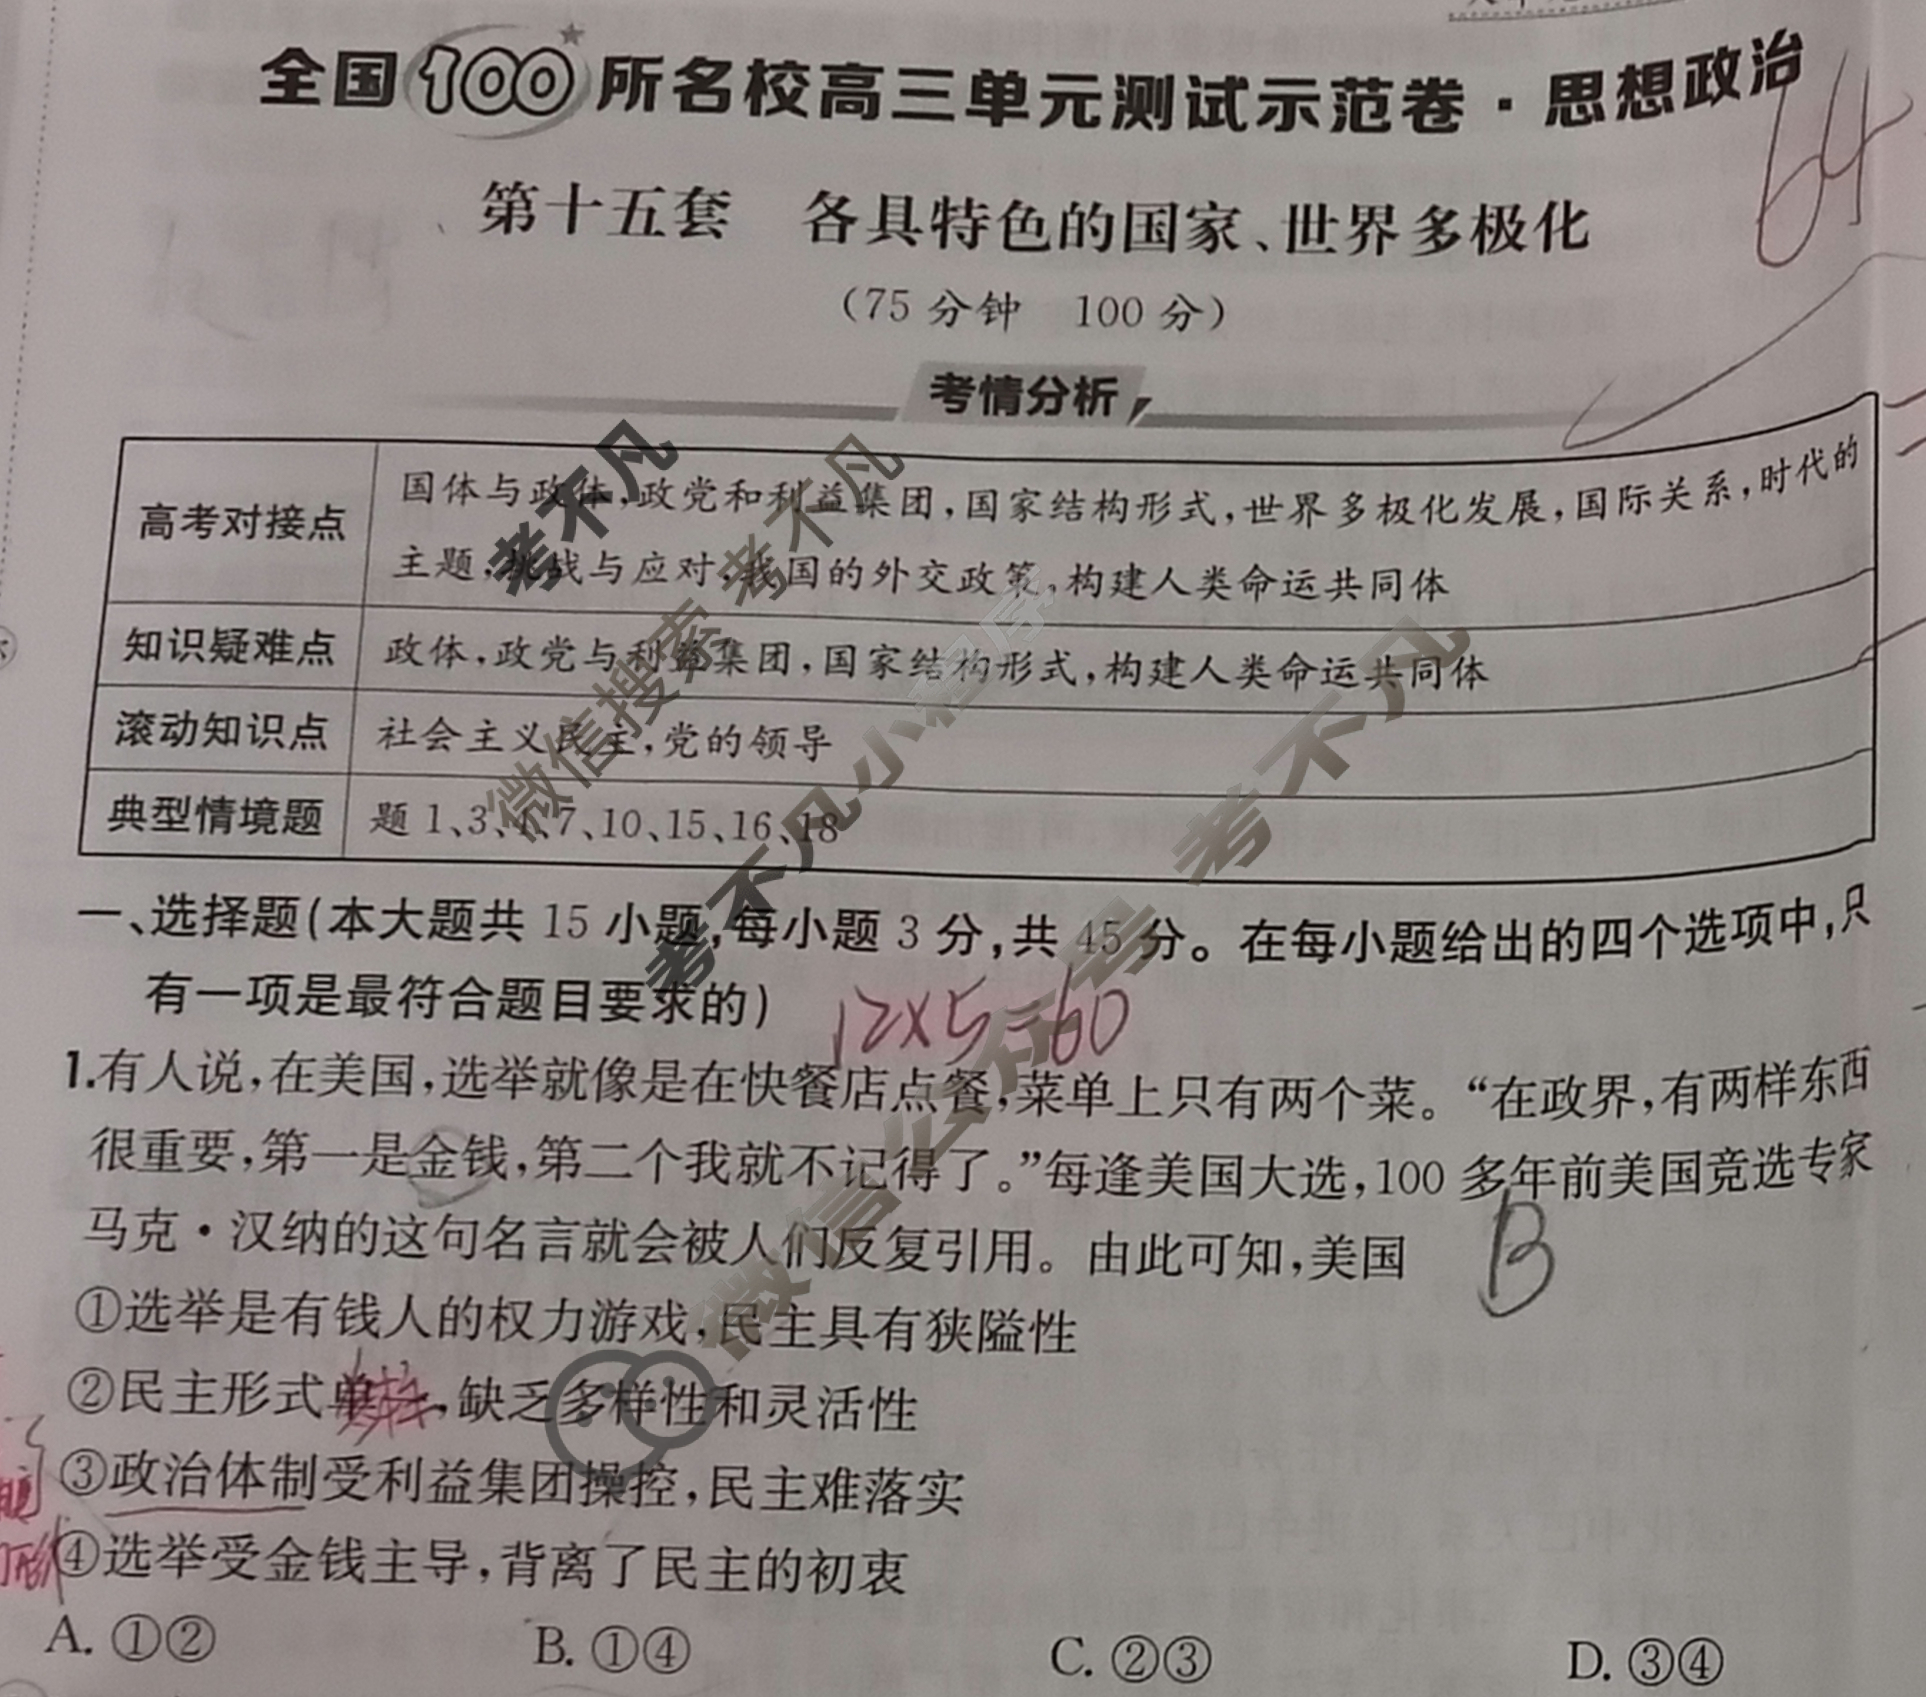 全国100所名校高三单元测试示范卷·思想政治
64
第十五套 各具特色的国家、世界多极化
（75分钟 100分）
考情分析
高考对接点 国体与政体，政党和利益集团，国家结构形式，世界多极化发展，国际关系，时代的
主题，挑战与应对，我国的外交政策，构建人类命运共同体
知识疑难点 政体，政党与利益集团，国家结构形式，构建人类命运共同体
滚动知识点 社会主义民主，党的领导
典型情境题 题1、3、4、7、10、15、16、18
一、选择题(本大题共15小题，每小题3分，共45分。在每小题给出的四个选项中，只
有一项是最符合题目要求的)
12×5=60
1.有人说，在美国，选举就像是在快餐店点餐，菜单上只有两个菜。“在政界，有两样东西
很重要，第一是金钱，第二个我就不记得了。”每逢美国大选，100多年前美国竞选专家
马克·汉纳的这句名言就会被人们反复引用。由此可知，美国
B
①选举是有钱人的权力游戏，民主具有狭隘性
②民主形式单一，缺乏多样性和灵活性
③政治体制受利益集团操控，民主难落实
④选举受金钱主导，背离了民主的初衷
A. ①② B. ①④ C. ②③ D. ③④
考不凡
微信搜索 考不凡
考不凡小程序
微信公众号 考不凡